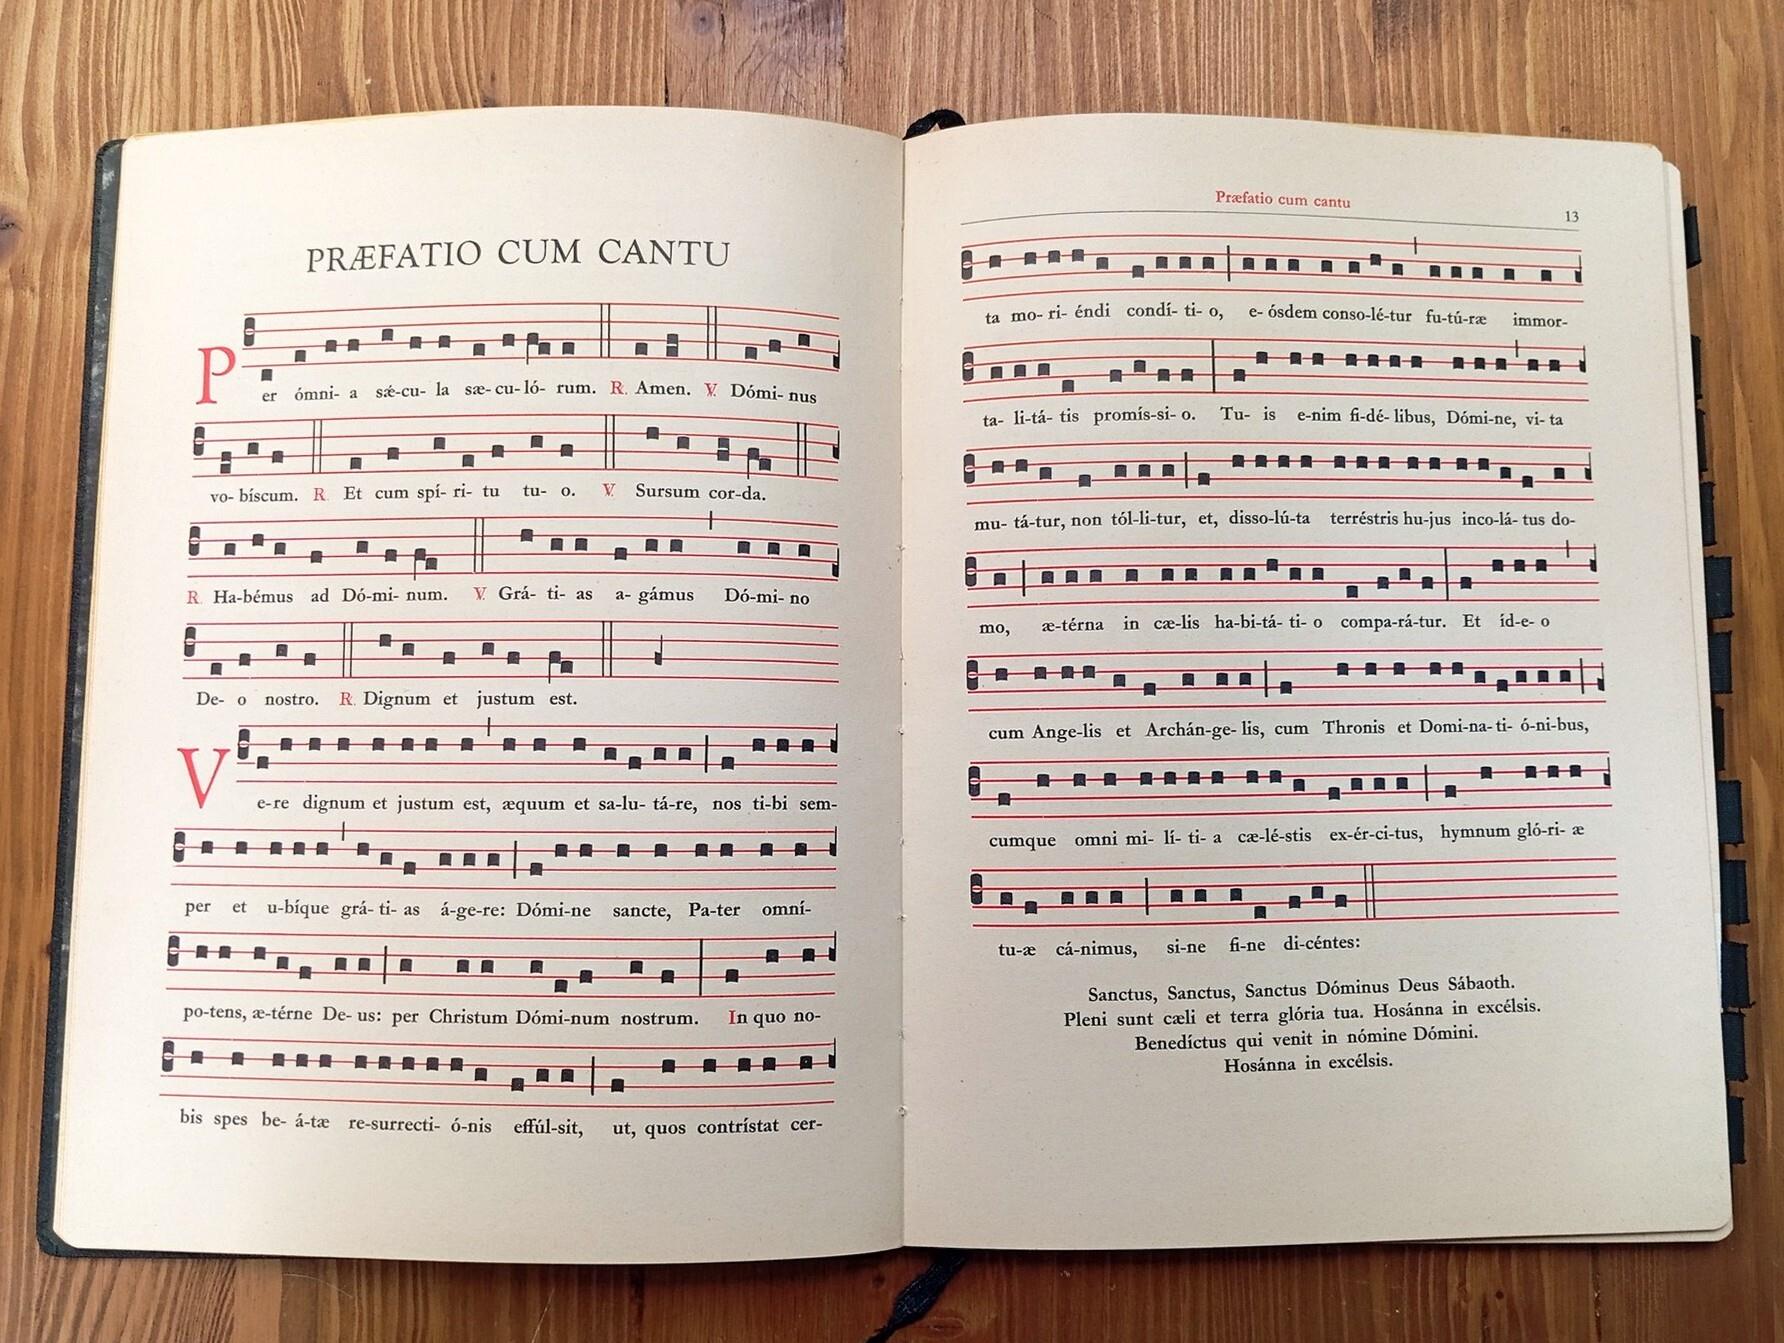 PRÆFATIO CUM CANTU
Per ómni- a sǽ-cu- la sæ-cu-ló- rum. ℟. Amen. ℣. Dómi- nus
vo- bíscum. ℟. Et cum spí- ri- tu tu- o. ℣. Sursum cor-da.
℟. Ha-bémus ad Dó-mi- num. ℣. Grá- ti- as a- gámus Dó-mi- no
De- o nostro. ℟. Dignum et justum est.
Ve-re dignum et justum est, æquum et sa-lu- tá-re, nos ti-bi sem-
per et u-bíque grá- ti- as á-ge-re: Dómi-ne sancte, Pa-ter omní-
po-tens, æ-térne De- us: per Christum Dómi-num nostrum. In quo no-
bis spes be- á-tæ re-surrecti- ó-nis effúl-sit, ut, quos contrístat cer-
Præfatio cum cantu
13
ta mo- ri- éndi condí- ti- o, e- ósdem conso-lé-tur fu-tú-ræ immor-
ta- li-tá- tis promís-si- o. Tu- is e-nim fi-dé- libus, Dómi-ne, vi- ta
mu- tá-tur, non tól-li-tur, et, disso-lú-ta terréstris hu-jus inco-lá- tus do-
mo, æ-térna in cæ-lis ha-bi-tá- ti- o compa-rá-tur. Et íd-e- o
cum Ange-lis et Archán-ge- lis, cum Thronis et Domi-na-ti- ó-ni-bus,
cumque omni mi- lí- ti- a cæ-lé-stis ex-ér-ci-tus, hymnum gló-ri- æ
tu-æ cá-nimus, si-ne fi-ne di-céntes:
Sanctus, Sanctus, Sanctus Dóminus Deus Sábaoth.
Pleni sunt cæli et terra glória tua. Hosánna in excélsis.
Benedíctus qui venit in nómine Dómini.
Hosánna in excélsis.